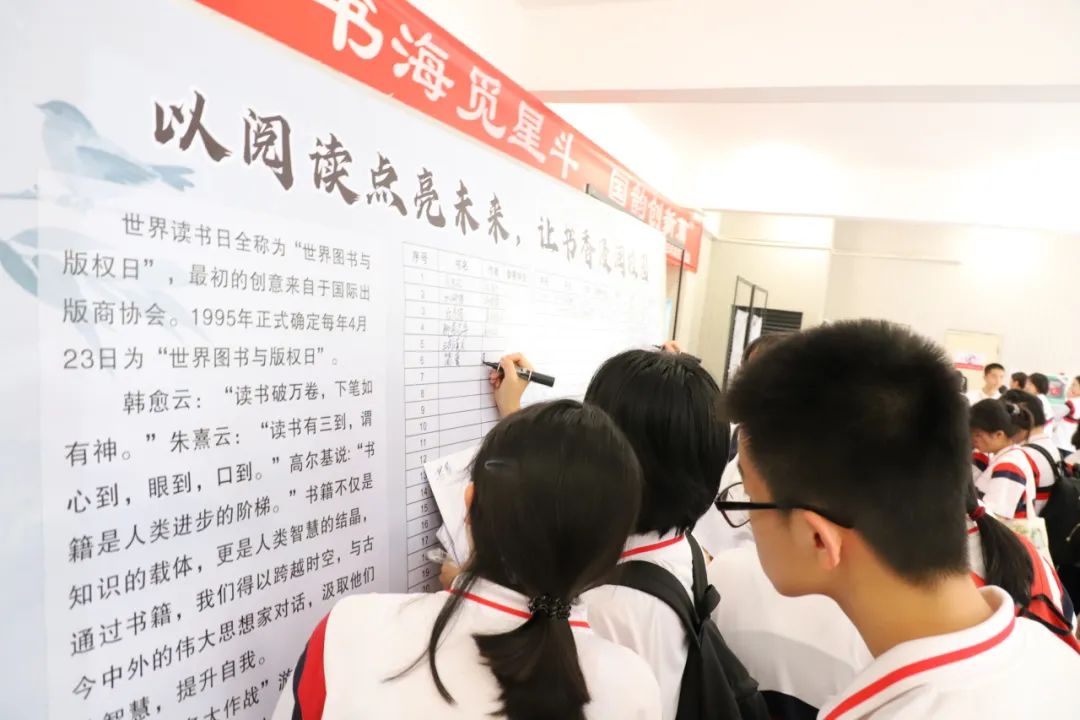 书海觅星斗 国韵创新篇
以阅读点亮未来，让书香浸润校园
世界读书日全称为“世界图书与
版权日”，最初的创意来自于国际出
版商协会。1995年正式确定每年4月
23日为“世界图书与版权日”。
韩愈云：“读书破万卷，下笔如
有神。”朱熹云：“读书有三到，谓
心到，眼到，口到。”高尔基说：“书
籍是人类进步的阶梯。”书籍不仅是
知识的载体，更是人类智慧的结晶，
通过书籍，我们得以跨越时空，与古
今中外的伟大思想家对话，汲取他们
智慧，提升自我。
大作战”游
序号
1
2
3
4
5
6
7
8
9
10
11
12
13
14
15
16
17
18
19